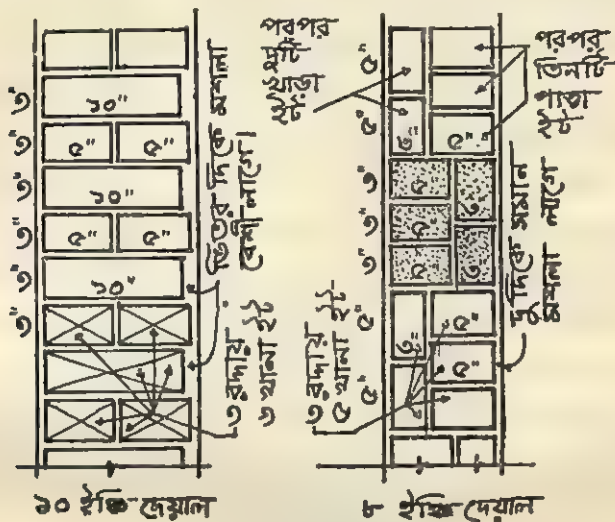 ৩" ৩" ৩" ৩" ৩" ৩"
১০"
৫" ৫"
১০"
৫" ৫"
১০"
ভিতর দিকে মশলা
বেশী লাগে।
৩ রদ্দায়
৬ খানা ইট
১০ ইঞ্চি দেয়াল
পরপর
দুটি
খাড়া
ইট
পরপর
তিনটি
পাতা
ইট
৫" ৫" ৩" ৩" ৩" ৫" ৫"
৩" ৫"
৫" ৩
৫"
৫" ৩
৩" ৫"
৫"
দুদিকে সমান
মশলা লাগে
৩ রদ্দায়
৫ খানা ইট
৮ ইঞ্চি দেয়াল